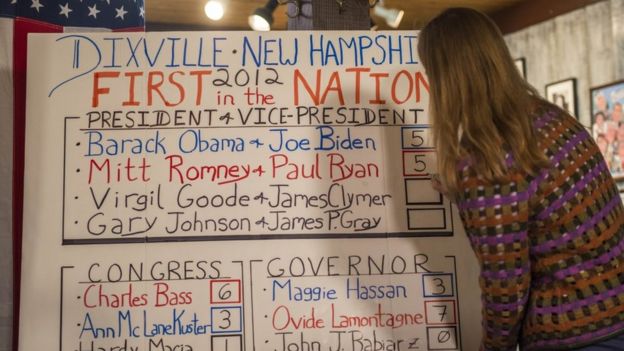 DIXVILLE • NEW HAMPSHI
FIRST 2012 in the NATION
PRESIDENT & VICE-PRESIDENT
• Barack Obama & Joe Biden 5
• Mitt Romney & Paul Ryan 5
• Virgil Goode & James Clymer
• Gary Johnson & James P. Gray
CONGRESS
• Charles Bass 6
• Ann McLane Kuster 3
• Hardy Macia 1
GOVERNOR
• Maggie Hassan 3
• Ovide Lamontagne 7
• John J. Babiarz 0